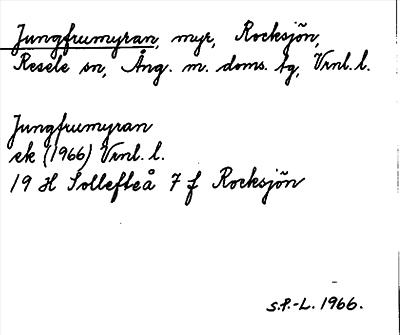 Jungfrumyran, myr, Rocksjön,
Resele sn, Ång. m. doms. tg, Vrnl. l.
Jungfrumyran
ek (1966) Vrnl. l.
19 H Sollefteå 7 f Rocksjön
S.P.-L. 1966.